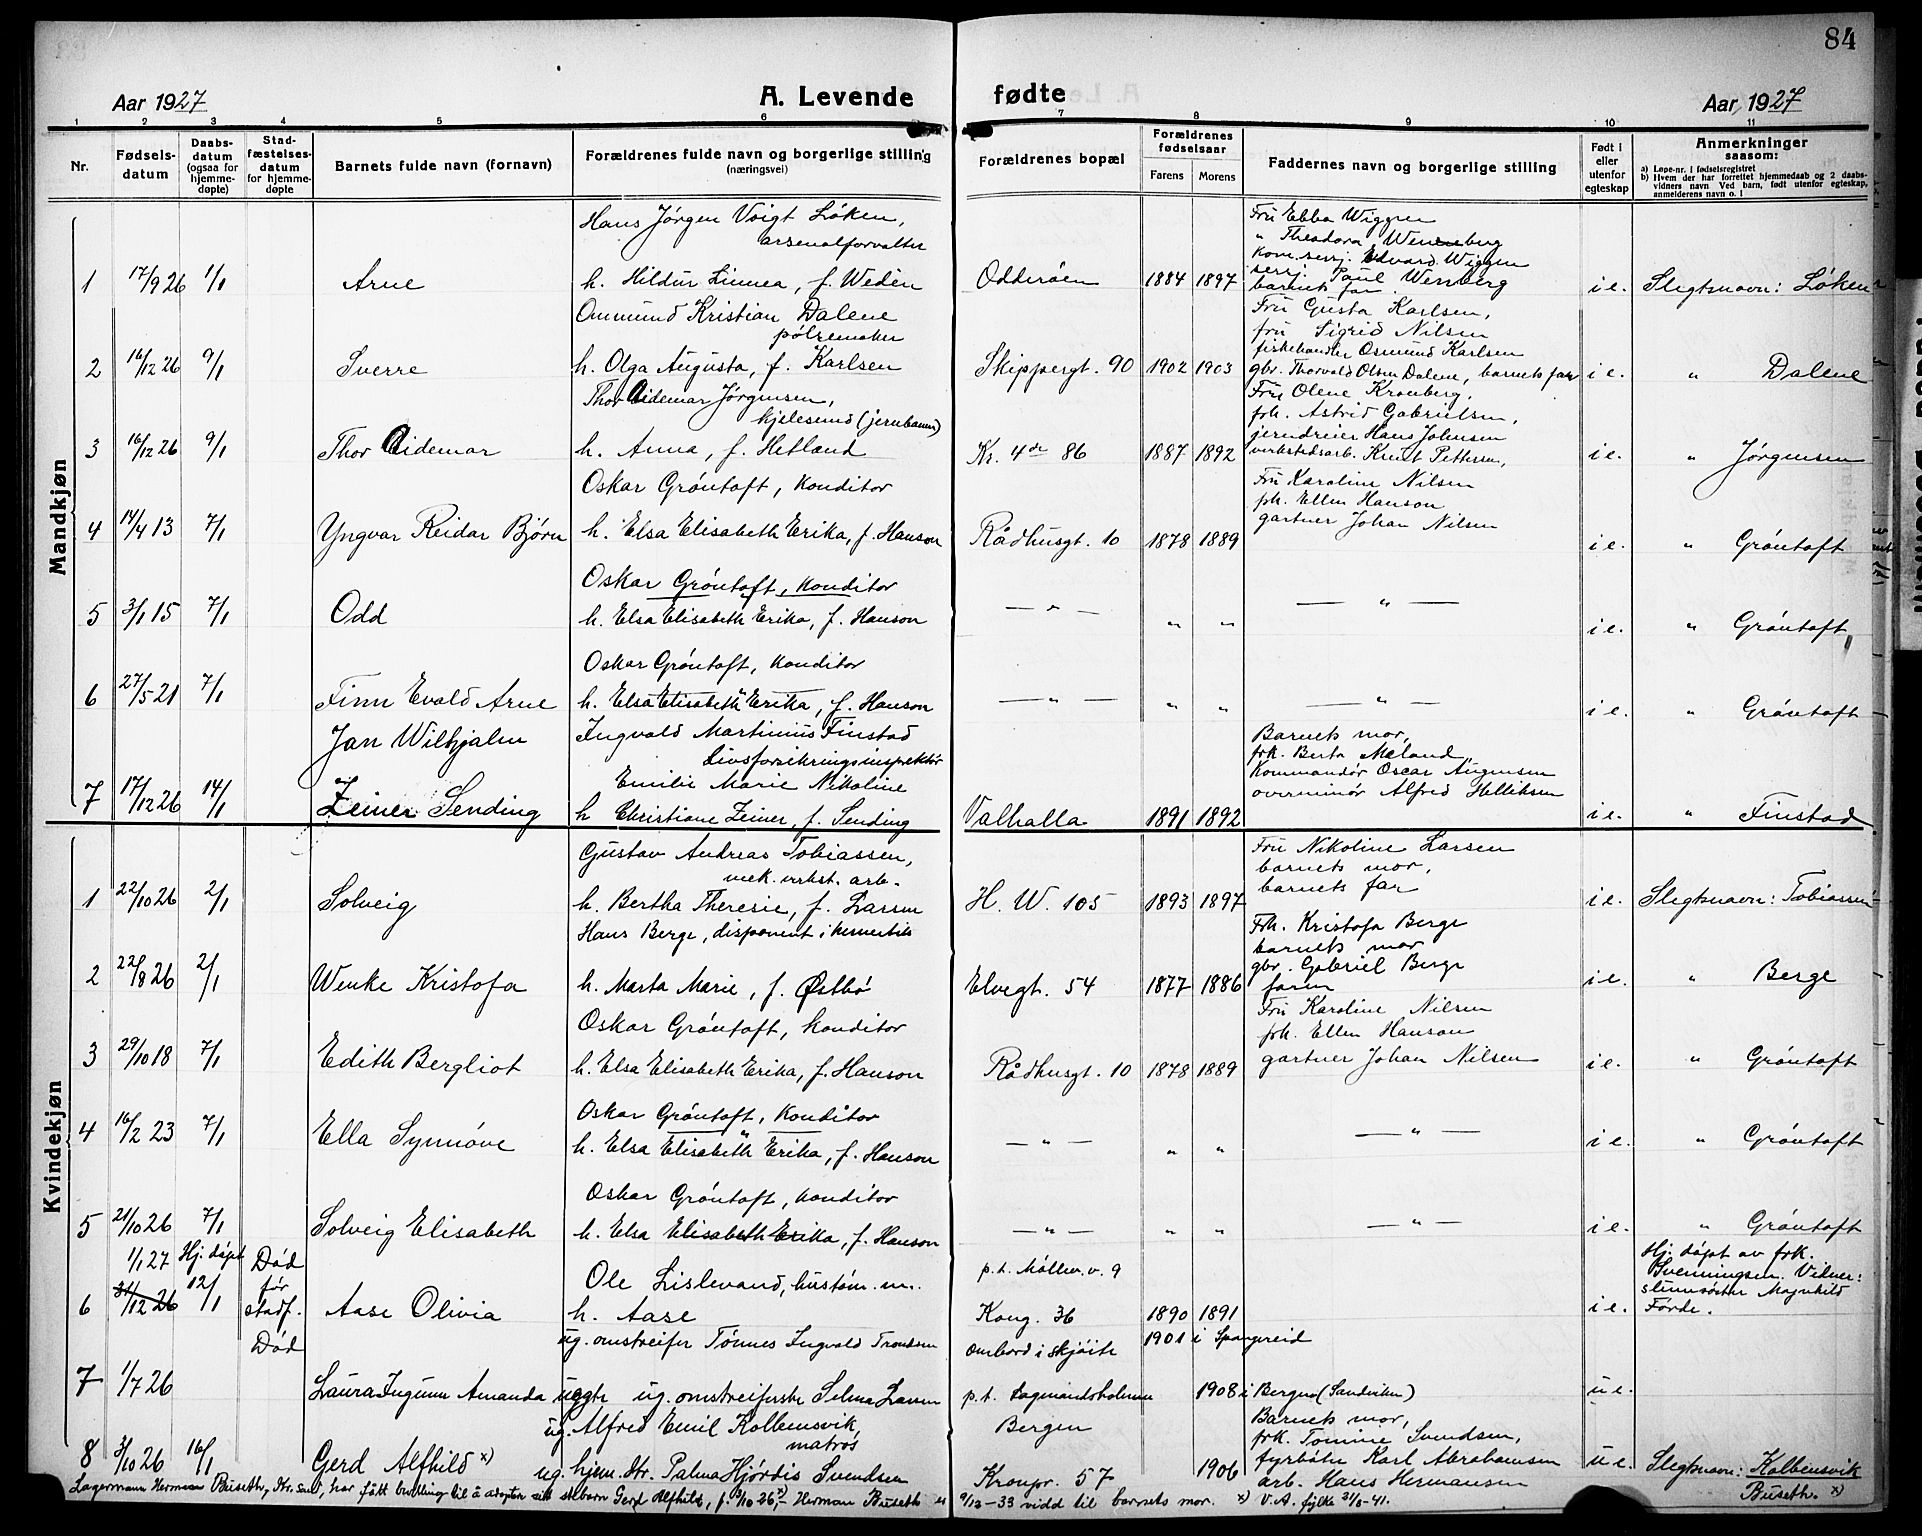 84
Aar 1927
A. Levende
fødte
Aar 1927
1 2 3 4 5 6 7 8 9 10 11
Nr.
Fødsels-
datum
Daabs-
datum
(ogsaa for
hjemme-
døpte)
Stad-
fæstelses-
datum
for hjemme-
døpte
Barnets fulde navn (fornavn)
Forældrenes fulde navn og borgerlige stilling
(næringsvei)
Forældrenes bopæl
Forældrenes
fødselsaar
Farens Morens
Faddernes navn og borgerlige stilling
Født i
eller
utenfor
egteskap
Anmerkninger
saasom:
a) Løpe-nr. i fødselsregistret
b) Hvem der har forrettet hjemmedaab og 2 daabs-
vidners navn Ved barn, født utenfor egteskap,
anmelderens navn o. l
Mandkjøn
Hans Jörgen Voigt Löken, Fru Ebba Wiggen
arsenalforvalter " Theodora Wennberg
Kom. serj. Edvard Wiggen
serj. Paul Wenberg
1 17/9 26 1/1 Arne h. Hildur Linnea, f. Wedèn Odderöen 1884 1897 barnets far i e. Slegtsnavn: Löken
Ommund Kristian Dalene Fru Gusta Karlsen,
pölsemaker fru Sigrid Nilsen
fiskehandler Osmund Karlsen
2 16/12 26 9/1 Sverre h. Olga Augusta, f. Karlsen Skippergt. 90 1902 1903 gbr. Thorvald Olsen Dalene, barnets far i e. " Dalene
Thor Aidemar Jörgensen, Fru Olene Kronberg,
kjelesmed (jernbanen) frk. Astrid Gabrielsen,
jerndreier Hans Johnsen
3 16/12 26 9/1 Thor Aidemar h. Anna, f. Hetland Kr. 4de 86 1887 1892 verkstedsarb. Knut Pettersen, i e. " Jörgensen
Oskar Gröntoft, konditor Fru Karoline Nilsen
frk. Ellen Hanson
4 14/4 13 7/1 Yngvar Reidar Björn h. Elsa Elisabeth Erika, f. Hanson Rådhusgt. 10 1878 1889 gartner Johan Nilsen i e. " Gröntoft
Oskar Gröntoft, konditor
5 3/1 15 7/1 Odd h. Elsa Elisabeth Erika, f. Hanson — " — " " — " — i e. " Gröntoft
Oskar Gröntoft, konditor
6 27/5 21 7/1 Finn Evald Arne h. Elsa Elisabeth Erika, f. Hanson — " — " " — " — i e. " Gröntoft
Jan Wilhjalm Ingvald Martinius Finstad Barnets mor,
Livsforsikringsinspektör frk. Berta Meland,
og Emilie Marie Nikoline Kommandör Oscar Augensen
7 17/12 26 14/1 Zeiner Sending h Christiane Zeiner, f. Sending Valhalla 1891 1892 overminör Alfred Helliksen i e. " Finstad
Kvindekjøn
Gustav Andreas Tobiassen, Fru Nikoline Larsen
mek. verkst. arb. barnets mor,
1 22/10 26 2/1 Solveig h. Bertha Theresie, f. Larsen H. W. 105 1893 1897 barnets far i e. Slegtsnavn: Tobiassen
Hans Berge, disponent i Frk. Kristofa Berge
barnets mor
gbr. Gabriel Berge
2 22/8 26 2/1 Wenke Kristofa h. Marta Marie, f. Östbö Elvegt. 54 1877 1886 faren i e. " Berge
Oskar Gröntoft, konditor Fru Karoline Nilsen
frk. Ellen Hanson
3 29/10 18 7/1 Edith Bergliot h. Elsa Elisabeth Erika, f. Hanson Rådhusgt. 10 1878 1889 gartner Johan Nilsen i e. " Gröntoft
Oskar Gröntoft, Konditor
4 16/2 23 7/1 Ella Synnöve h. Elsa Elisabeth Erika, f. Hanson — " — " " — " — i e. " Gröntoft
Oskar Gröntoft, konditor
5 21/10 26 7/1 Solveig Elisabeth h. Elsa Elisabeth Erika, f. Hanson — " — " " — " — i e. " Gröntoft
1/1 27 Hj. döpt Död Hj. döpt av frk.
för Ole Lislevand, hustöm. m. p.t. Möllev. v. 9 Svenningsen. Vidner:
slumsöster Magnhild
6 31/12 26 12/1 stadf. Aase Olivia h. Aase Kong. 36 1890 1891 i e. Förde.
Död ug. omstreifer Tönnes Ingvald Trondsen ombord i skjöite 1901 i Spangereid
7 1/7 26 Laura Ingunn Amanda uegte ug. omstreiferske Selma Larsen p.t. Lagmandsholmen 1908 i Bergen (Sandviken) u e.
Bergen
ug. Alfred Emil Kolbensvik, Barnets mor,
matros frk. Tomine Svendsen,
fyrböter Karl Abrahamsen
8 3/10 26 16/1 Gerd Alfhild x) ug. hjem. str. Palma Hjördis Svendsen Kronpr. 57 1906 arb. Hans Hermansen u e. Slegtsnavn: Kolbensvik
Buseth. x)
Lagermann Herman Buseth, Kr.sand, har fått bevilling til å adoptere sitt stebarn Gerd Alfhild, f. 3/10 26, x) Herman Buseth 9/12-33 vidd til barnets mor. x) V. A. fylke 21/3-41.